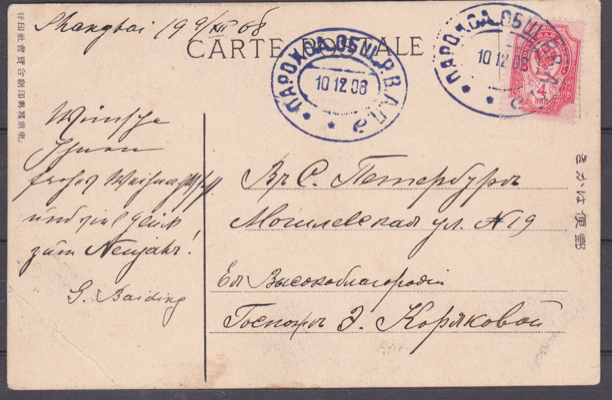 Shanghai 19 9/XII 08
CARTE POSTALE
ПАРОХ. СА. ОБЩ. Р. В. А. П. 10 12 08 а
ПАРОХ. СА. ОБЩ. 10 12 08 а
4
Wünsche
Ihnen
frohes Weihnachtsfest
und viel Glück
zum Neujahr!
G. Baiding
Въ С. Петербургъ
Могилевская ул. № 19
Ея Высокоблагородiю
Госпожѣ Э. Коряковой
きかは便郵